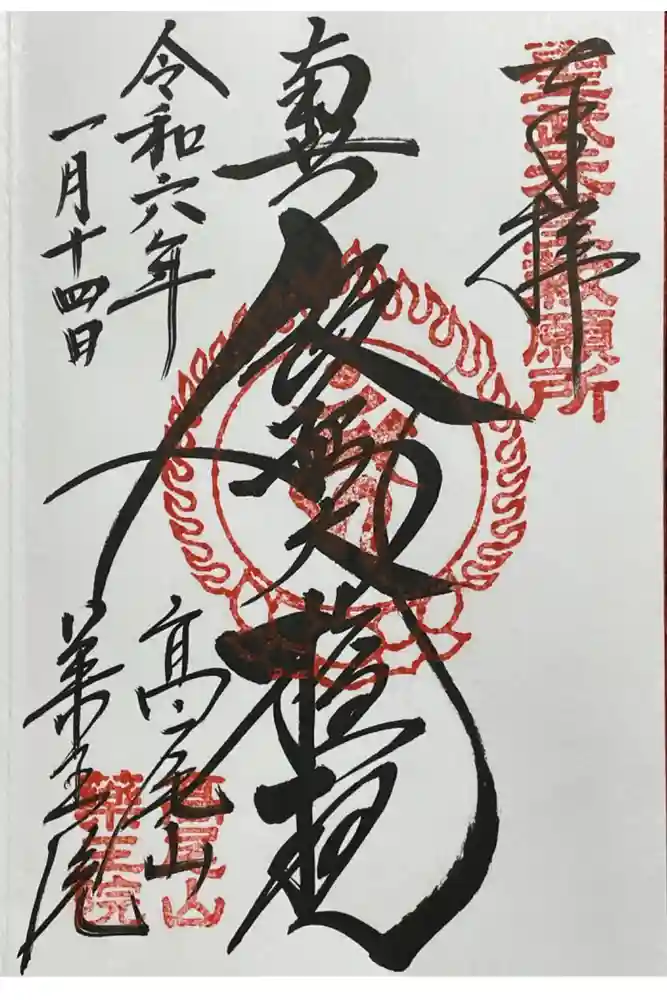 奉拝
聖武天皇勅願所
飯縄大権現
令和六年
一月十四日
高尾山
薬王院
高尾山
薬王院